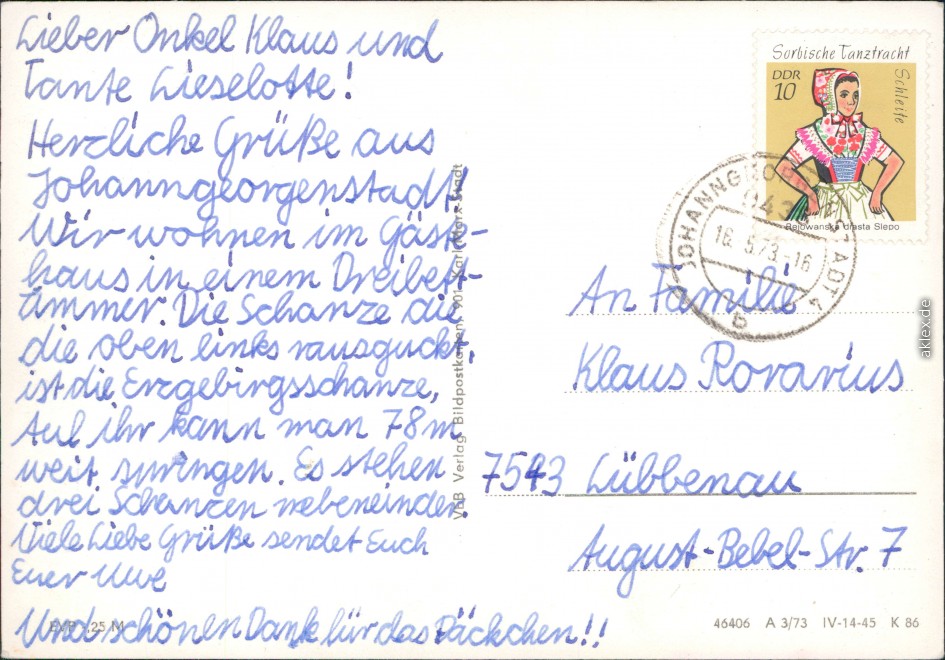 Lieber Onkel Klaus und
Tante Lieselotte!
Herzliche Grüße aus
Johanngeorgenstadt!
Wir wohnen im Gäste-
haus in einem Dreibett-
zimmer. Die Schanze die
die oben links rausguckt,
ist die Erzgebirgsschanze,
Auf ihr kann man 78m
weit springen. Es stehen
drei Schanzen nebeneinder.
Viele Liebe Grüße sendet Euch
Euer Uwe
Und schönen Dank für das Päckchen!!
EVP ,25 M
VEB Verlag Bildpostkarten, 901 Karl-Marx-Stadt
Sorbische Tanztracht
DDR
10
Schleife
Rejowanska drasta Slepo
JOHANNGEORGENSTADT 4
943
16.5.73.-16
b
An Familie
Klaus Rovarius
7543 Lübbenau
August-Bebel-Str. 7
46406 A 3/73 IV-14-45 K 86
aklex.de